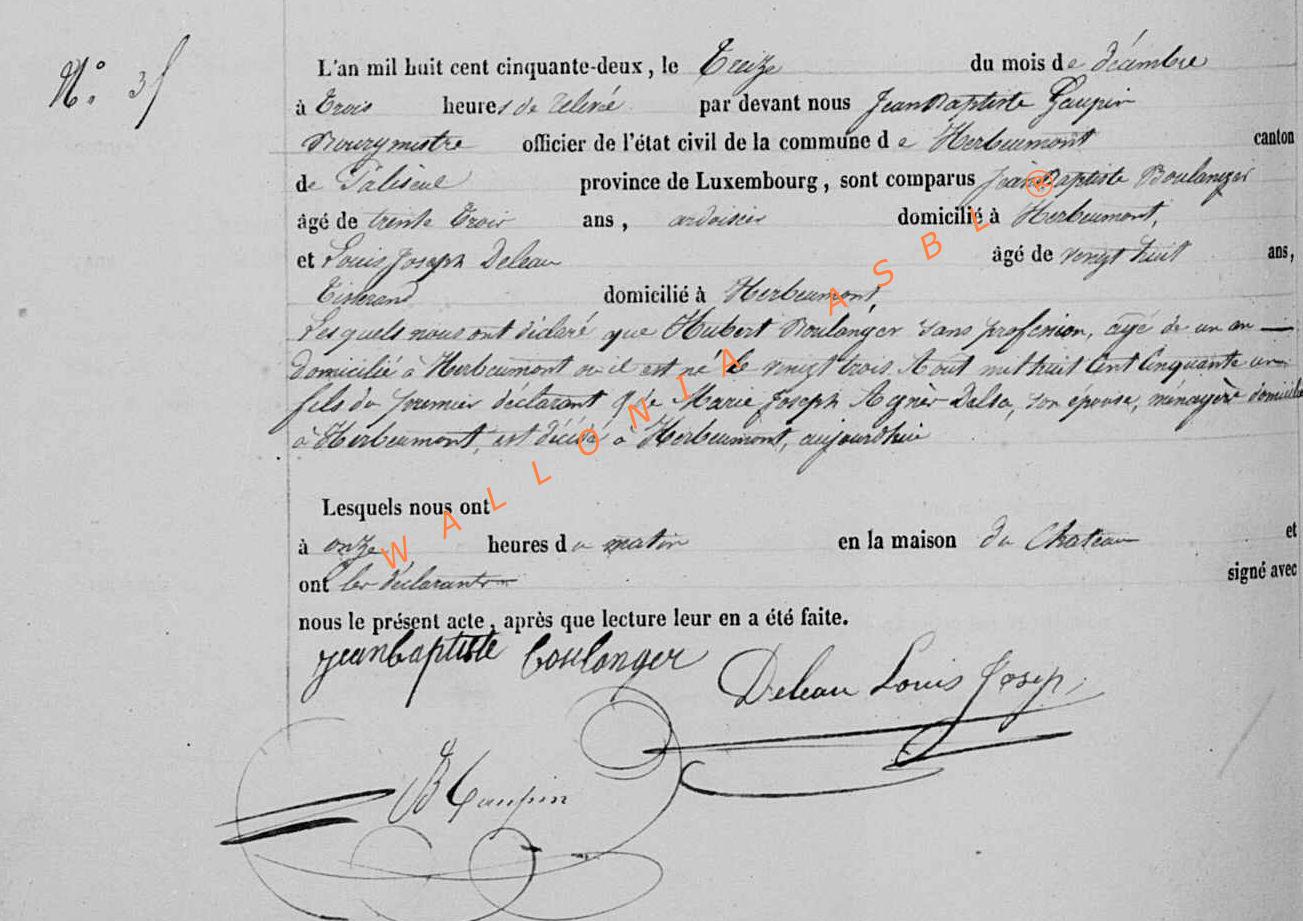 N° 35
L'an mil huit cent cinquante-deux, le Treize du mois de décembre
à Trois heures de relevé par devant nous Jean Baptiste Gaupin
Bourgmestre officier de l'état civil de la commune de Herbeumont canton
de Paliseul province de Luxembourg, sont comparus Jean Baptiste Boulanger
âgé de trente Trois ans, ardoisier domicilié à Herbeumont,
et Louis Joseph Deleau âgé de vingt huit ans,
Tisserand domicilié à Herbeumont,
Lesquels nous ont déclaré que Hubert Boulanger sans profession, agé de un an
domicilié à Herbeumont où il est né le vingt trois Aout mil huit Cent Cinquante un
fils du premier déclarant & de Marie Joseph Agnès Delsa, son épouse, ménagère domiciliée
à Herbeumont, est décédé à Herbeumont, aujourdhui
Lesquels nous ont
à onze heures du matin en la maison du Chateau et
ont les déclarants signé avec
nous le présent acte, après que lecture leur en a été faite.
jeanbaptiste boulanger
Deleau Louis Josep
JB Gaupin
WALLONIA ASBL ®